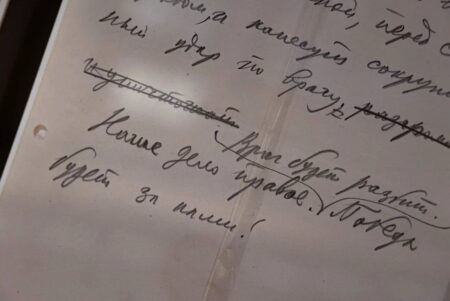 ной, перед
и нанесут сокруши
ный удар по врагу,
и уничтожат Враг будет разбит.
Наше дело правое. Победа
будет за нами!